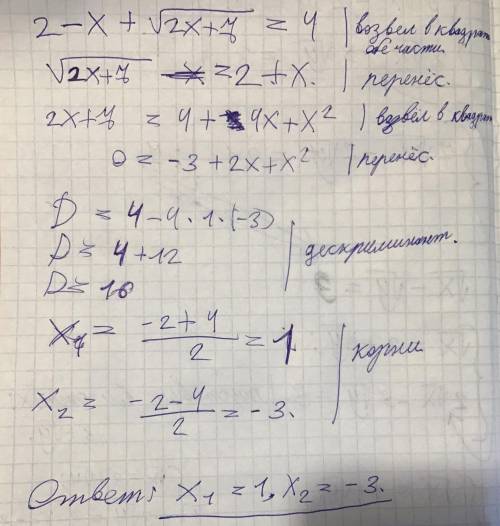 2 - x + √2x+7 = 4 | возвёл в квадрат обе части.
√2x+7 = 2 + x. | перенёс.
2x+7 = 4 + 4x + x² | возвёл в квадрат
0 = -3 + 2x + x² | перенёс.
D = 4 - 4 · 1 · (-3)
D = 4 + 12 | дескриминант.
D = 16
x₁ = -2+4/2 = 1 | корни
x₂ = -2-4/2 = -3.
Ответ: x₁ = 1, x₂ = -3.